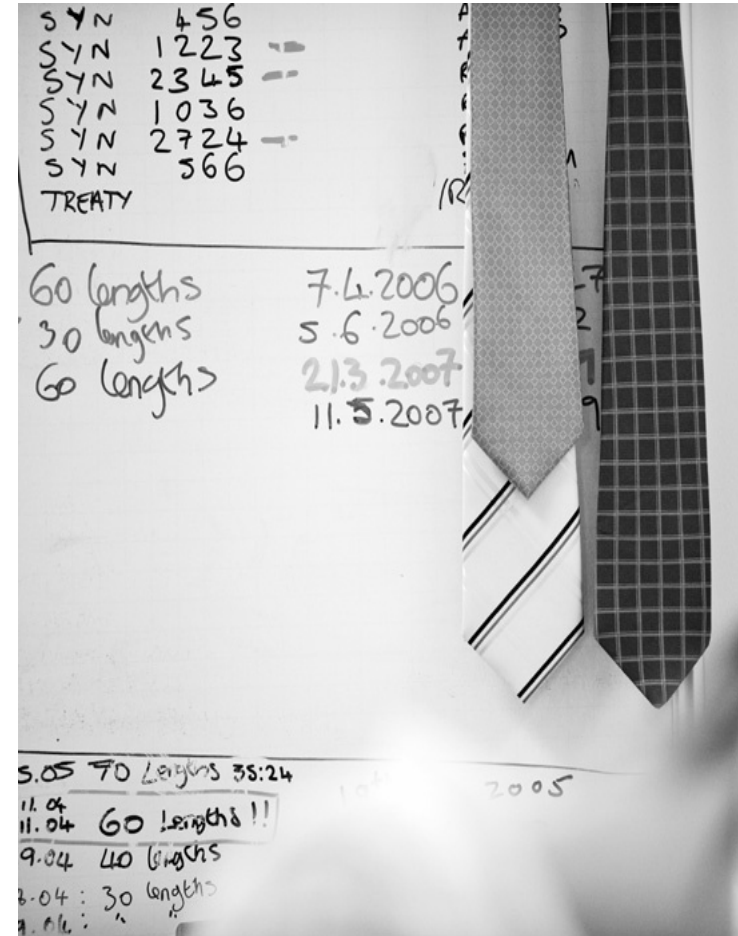 SYN 456
SYN 1223
SYN 2345
SYN 1036
SYN 2724
SYN 566
TREATY
60 lengths 7.4.2006
30 lengths 5.6.2006
60 lengths 21.3.2007
11.5.2007
5.05 70 Lengths 35:24
2005
11.04
11.04 60 Lengths!!
9.04 40 lengths
30 lengths